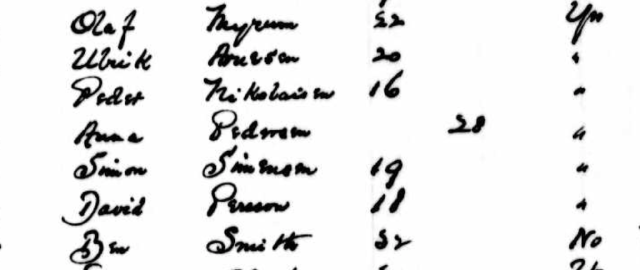 Olaf Myrum 22 Yes
Ulrik Aversen 20 "
Peder Nikolaisen 16 "
Anna Pedersen 28 "
Simon Simensen 19 "
David Persson 18 "
Ben Smith 32 No